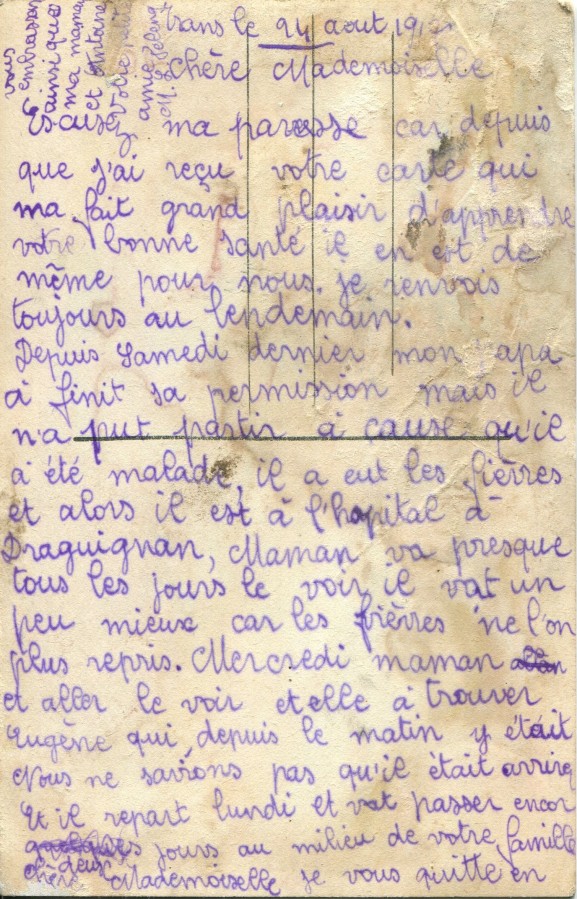 Trans le 24 aout 191
Chère Mademoiselle
Escusez ma paresse car depuis
que j'ai reçu votre carte qui
ma fait grand plaisir d'apprendre
votre bonne santé il en est de
même pour nous. je renvois
toujours au lendemain.
Depuis Samedi dernier mon papa
à finit sa permission mais il
n'a put partir à cause qu'il
à été malade, il a eut les fièrres
et alors il est à l'hopital à
Draguignan, Maman va presque
tous les jours le voir il vat un
peu mieux car les fièrres ne l'on
plus repris. Mercredi maman
et aller le voir et elle à trouver
Eugène qui depuis le matin y était
Nous ne savions pas qu'il était arrivé
Et il repart lundi et vat passer encor
deux jours au milieu de votre famille
Chère Mademoiselle je vous quitte en
vous
embrassan
ainsi que
ma maman
et
Votre
amie
M.